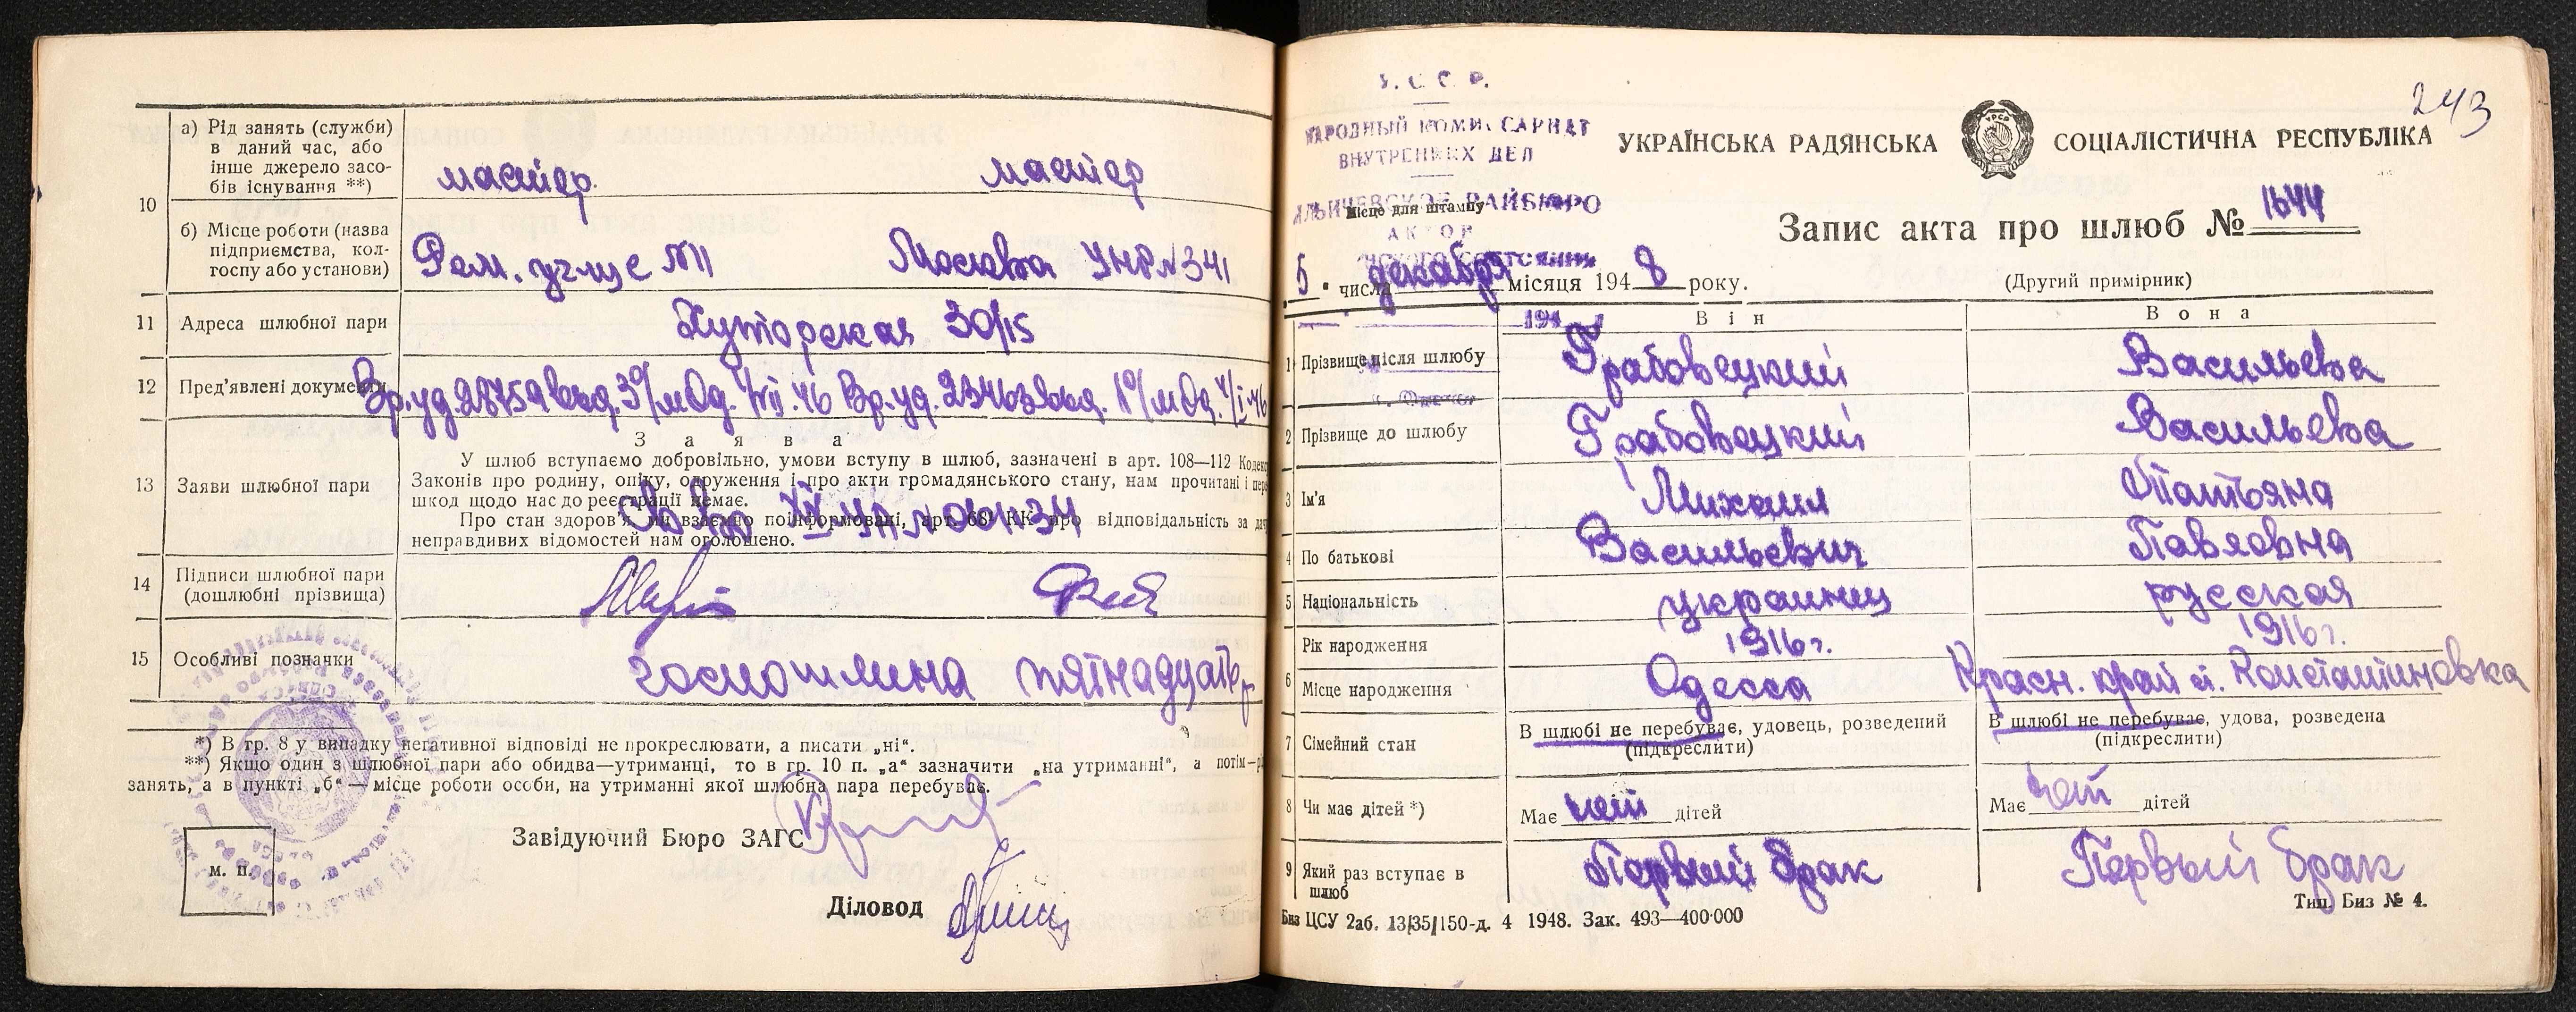 а) Рід занять (служби)
в даний час, або
інше джерело засо-
бів існування **)
мастер
мастер
10
б) Місце роботи (назва
підприємства, кол-
госпу або установи)
Рем. уч-ще №11
Москва УНР №341
11 Адреса шлюбної пари
Хуторская 30/15
12 Пред'явлені документи
Вр. уд. 28759 выд. 3 о/м Од.
Вр. уд.
13 Заяви шлюбної пари
З а я в а
У шлюб вступаємо добровільно, умови вступу в шлюб, зазначені в арт. 108—112 Кодек
Законів про родину, опіку, одруження і про акти громадянського стану, нам прочитані і пере
шкод щодо нас до реєстрації немає.
Про стан здоров'я ми взаємно поінформовані, арт. 68 КК про відповідальність за да
неправдивих відомостей нам оголошено.
Св-во
14 Підписи шлюбної пари
(дошлюбні прізвища)
15 Особливі позначки
госпошлина пятнадцать р
*) В гр. 8 у випадку негативної відповіді не прокреслювати, а писати „ні“.
**) Якщо один з шлюбної пари або обидва—утриманці, то в гр. 10 п. „а“ зазначити „на утриманні“, а потім—рі
занять, а в пункті „б“ — місце роботи особи, на утриманні якої шлюбна пара перебуває.
Завідуючий Бюро ЗАГС
м. п.
Діловод
У. С. С. Р.
НАРОДНЫЙ КОМИССАРИАТ
ВНУТРЕННИХ ДЕЛ
ИЛЬИЧЕВСКОЕ РАЙБЮРО
Місце для штампу
АКТОВ
194
243
УКРАЇНСЬКА РАДЯНСЬКА СОЦІАЛІСТИЧНА РЕСПУБЛІКА
УРСР
Запис акта про шлюб № 1644
5 " числа декабря місяця 194 8 року.
(Другий примірник)
Він Вона
1 Прізвище після шлюбу Грабовецкий Васильева
2 Прізвище до шлюбу Грабовецкий Васильева
3 Ім'я Михаил Татьяна
4 По батькові Васильевич Павловна
5 Національність украинец русская
Рік народження 1916 г. 1916 г.
6 Місце народження Одесса Красн. край ст. Константиновка
7 Сімейний стан
В шлюбі не перебуває, удовець, розведений
(підкреслити)
В шлюбі не перебуває, удова, розведена
(підкреслити)
8 Чи має дітей *) Має нет дітей Має нет дітей
9 Який раз вступає в
шлюб
Первый брак Первый брак
Биз ЦСУ 2аб. 13/35/150-д. 4 1948. Зак. 493—400·000
Тип. Биз № 4.